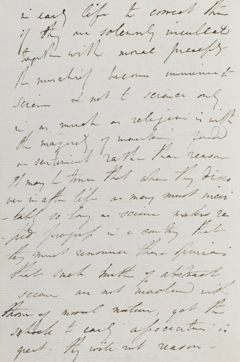 in early life to connect them
if they are solemnly inculcated
together with moral precepts
the mischief becomes immense to
science & not to science only
in as much as religion is with
the majority of mankind
a sentiment rather than reason
It may be true that when they disco
ver in after life as many must inevi
-tably so long as science makes ra
-pid progress in a country that
they must renounce these opinions
that such truths of abstract
science are not involved with
those of moral nature, yet the
shock to early associations is
great. they will not reason -